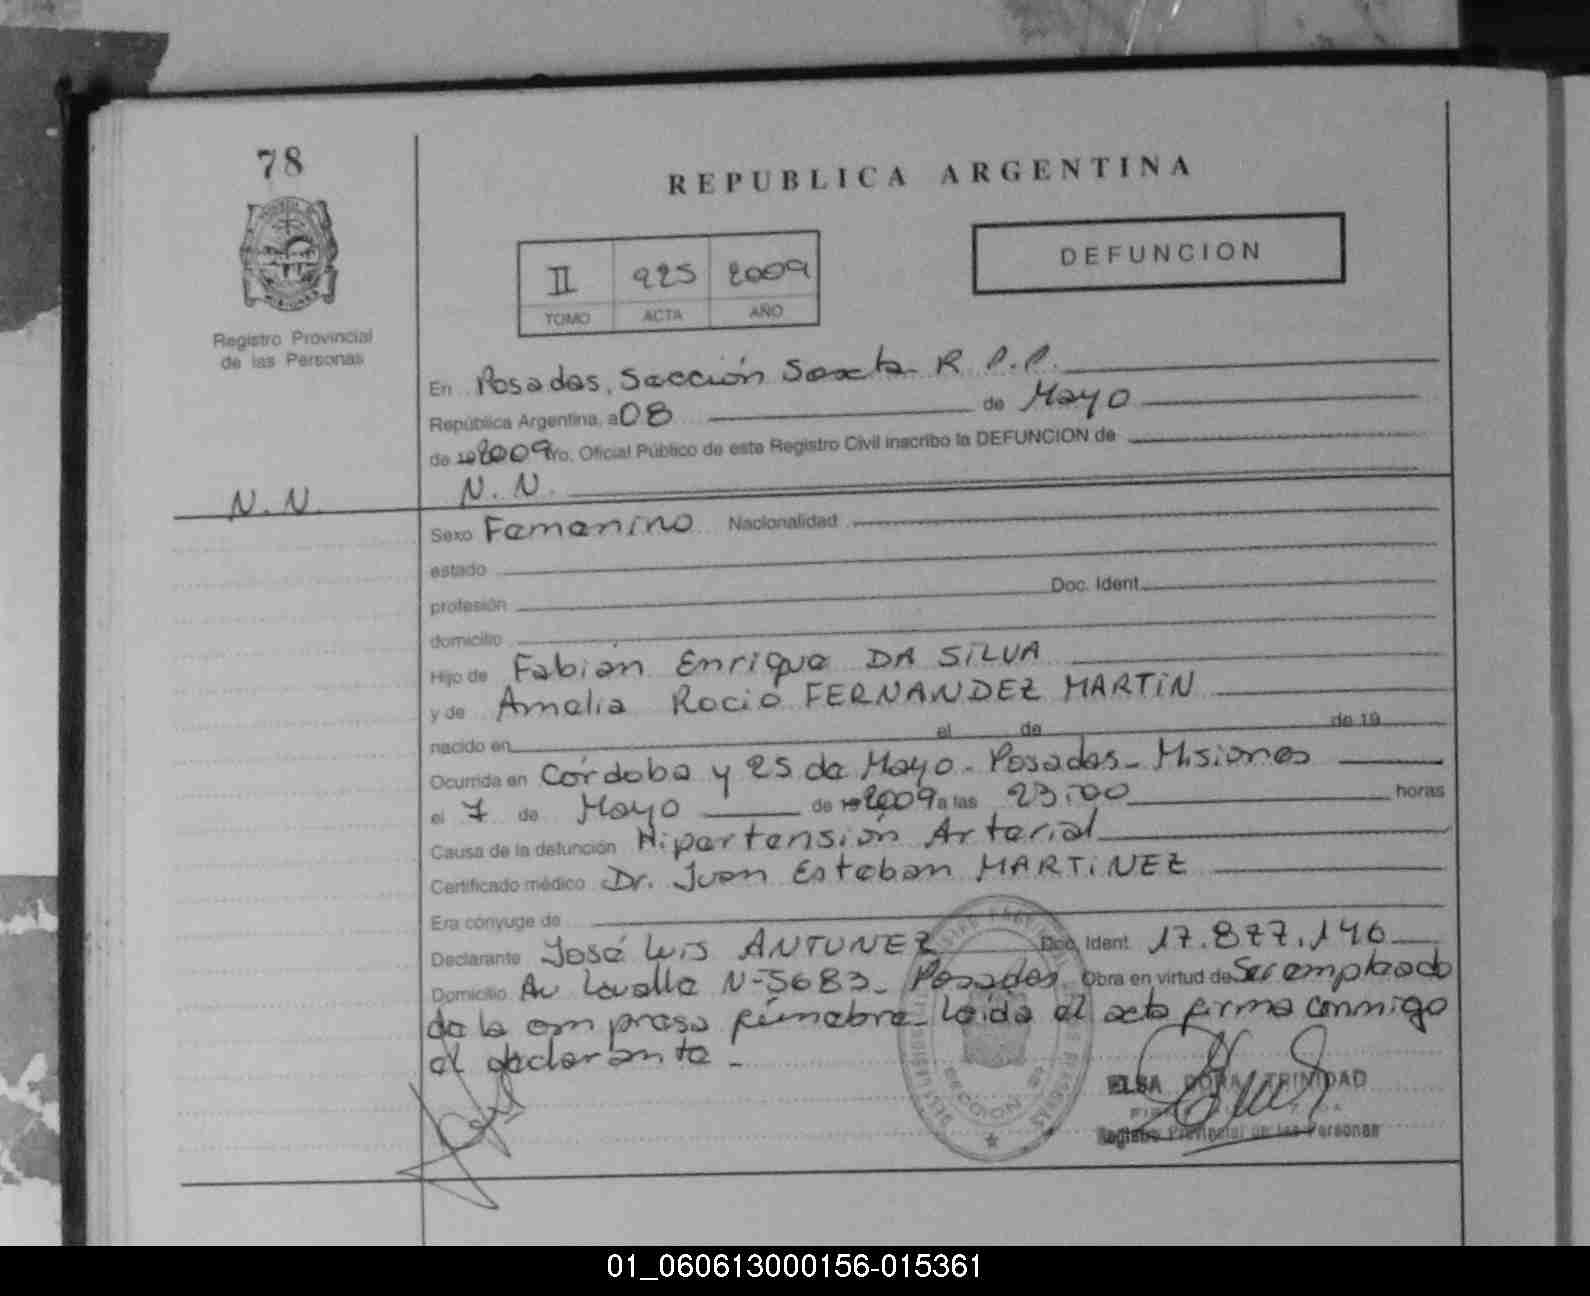 78
REPUBLICA ARGENTINA
DEFUNCION
II 925 2009
TOMO ACTA AÑO
Registro Provincial
de las Personas
En Posadas, Sección Sexta R P.P.
República Argentina, a 08 de Mayo
de 19 2009 Yo, Oficial Público de este Registro Civil inscribo la DEFUNCION de
N.N.
N.N.
Sexo Femenino Nacionalidad
estado
profesión Doc. Ident.
domicilio
Hijo de Fabián Enrique DA SILVA
y de Amelia Rocio FERNANDEZ MARTIN
nacido en el de de 19
Ocurrida en Córdoba y 25 de Mayo - Posadas - Misiones
el 7 de Mayo de 19 2009 a las 23:00 horas
Causa de la defunción Hipertensión Arterial
Certificado médico Dr. Juan Esteban MARTINEZ
Era cónyuge de
Declarante José Luis ANTUNEZ Doc. Ident. 17.877.146
Domicilio Av Lavalle N-5683 - Posadas Obra en virtud de Ser empleado
de la empresa fúnebre - Leída el acta firma conmigo
el declarante -
SECCION
ELSA DORA TRINIDAD
Registro Provincial de las Personas
01_060613000156-015361